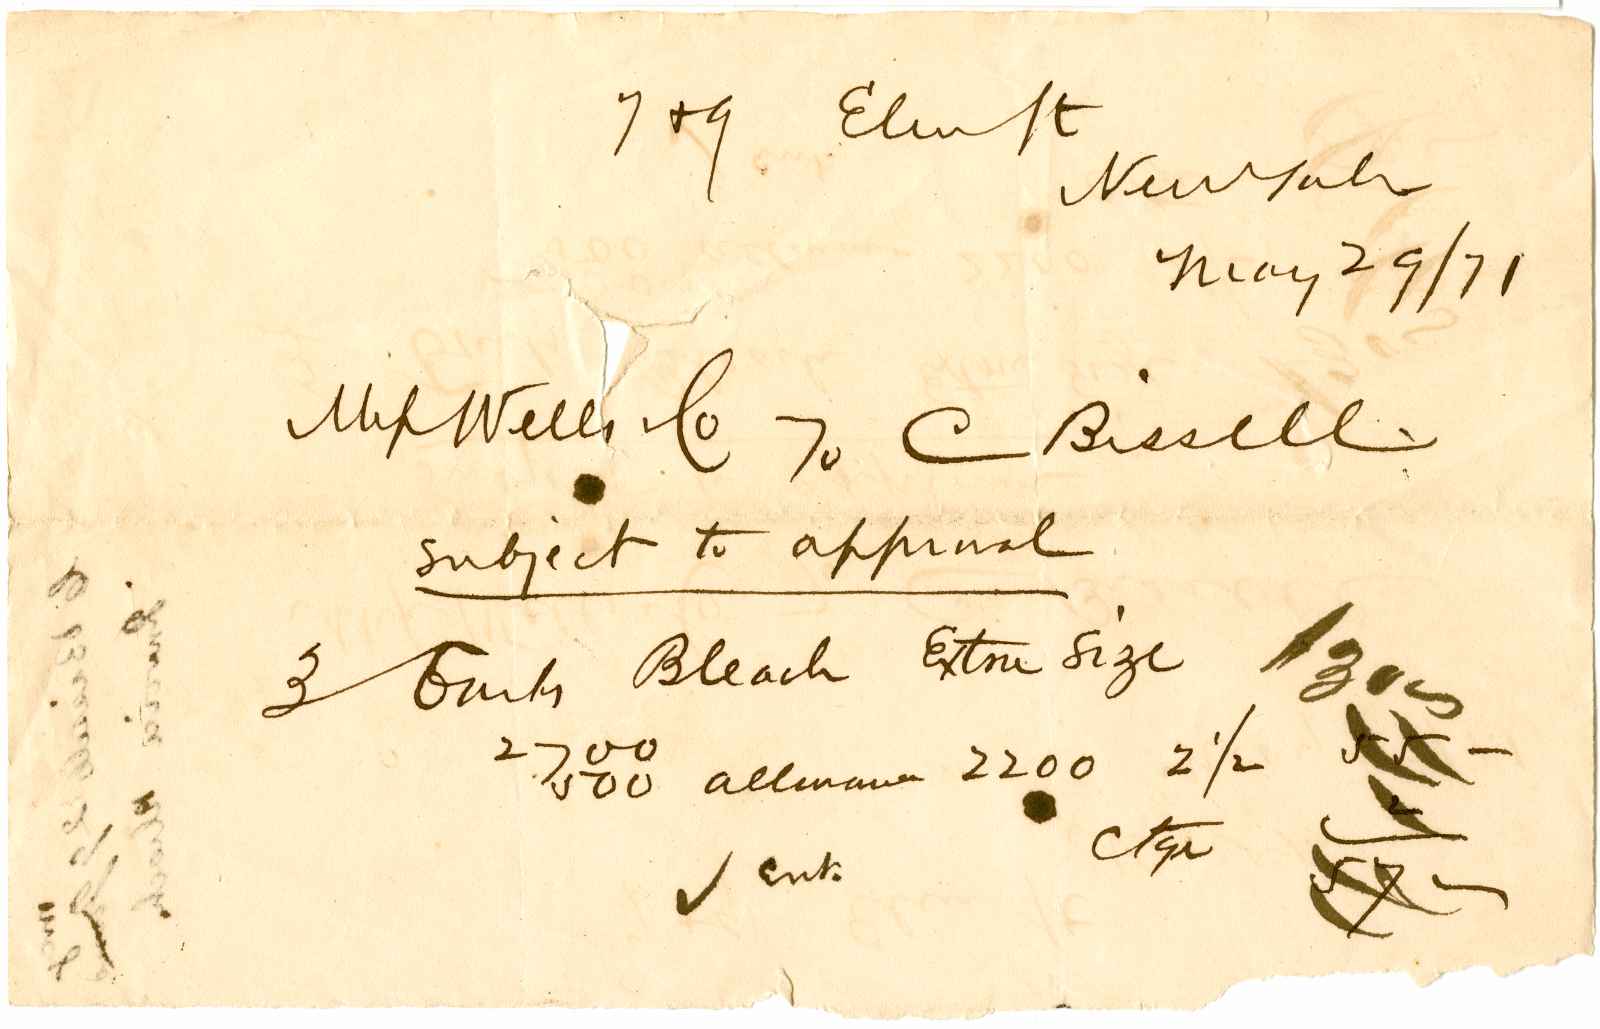 7 & 9 Elm St
New York
May 29/71
Wells Co To C Bissell
subject to approval
3 Bleach Extra Size
2700
500 allowance 2200 2½ 55 -
2
Ctge
57 -
✓ Ent.